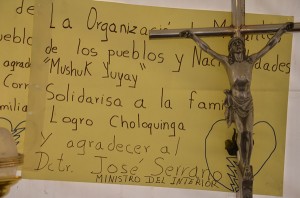 La Organización de
de los pueblos y Nac dades
"Mushuk Yuyay"
Solidarisa a la fami
Logro Choloquinga
y agradecer al
Dctr. José Serrano
MINISTRO DEL INTERIOR